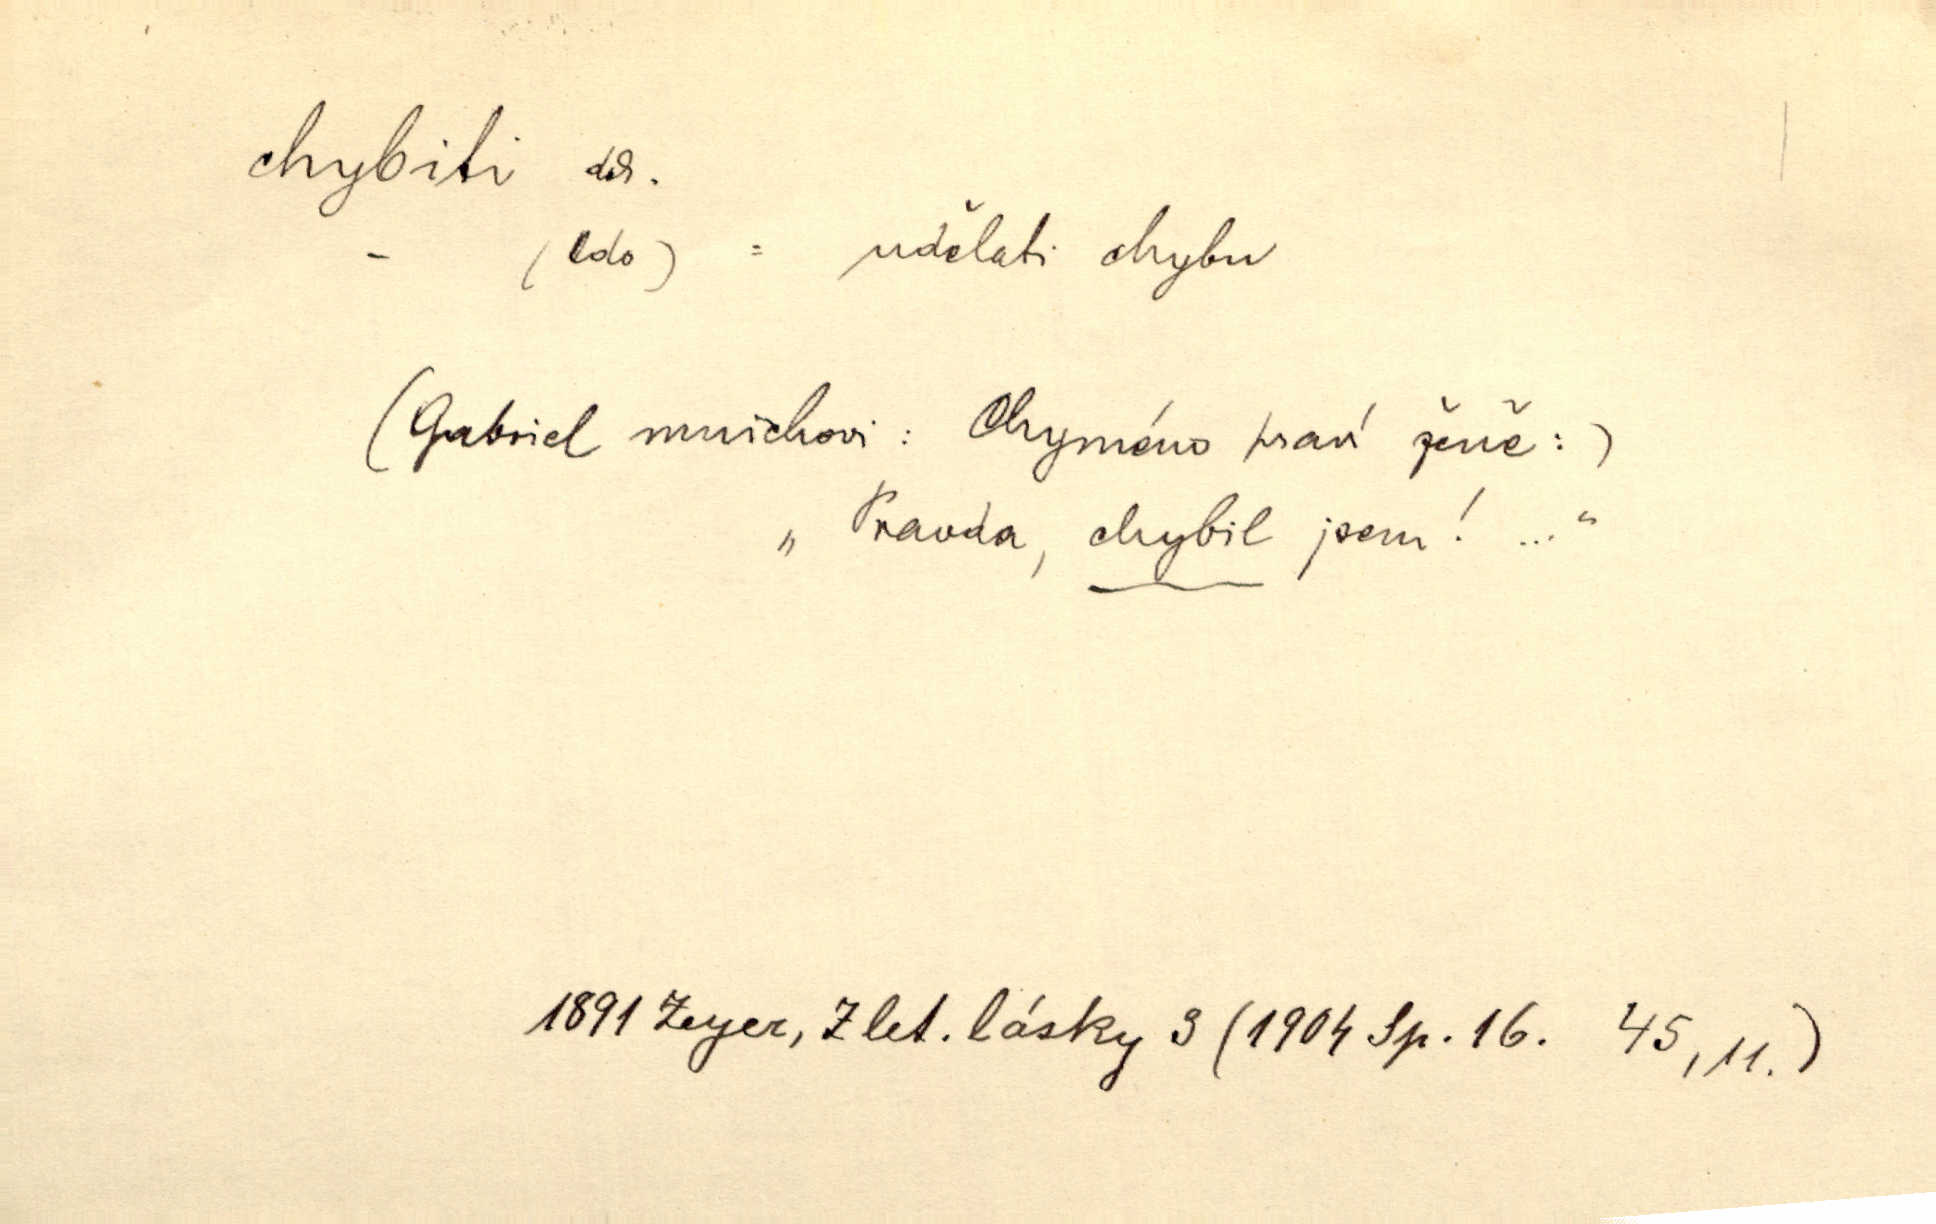 chybiti dok.
– (kdo) = udělati chybu
(Gabriel mnichovi: Chyméno praví ženě:)
„Pravda, chybil jsem! ..."
1891 Zeyer, Z let. lásky 3 (1904 Sp. 16. 45, 11.)